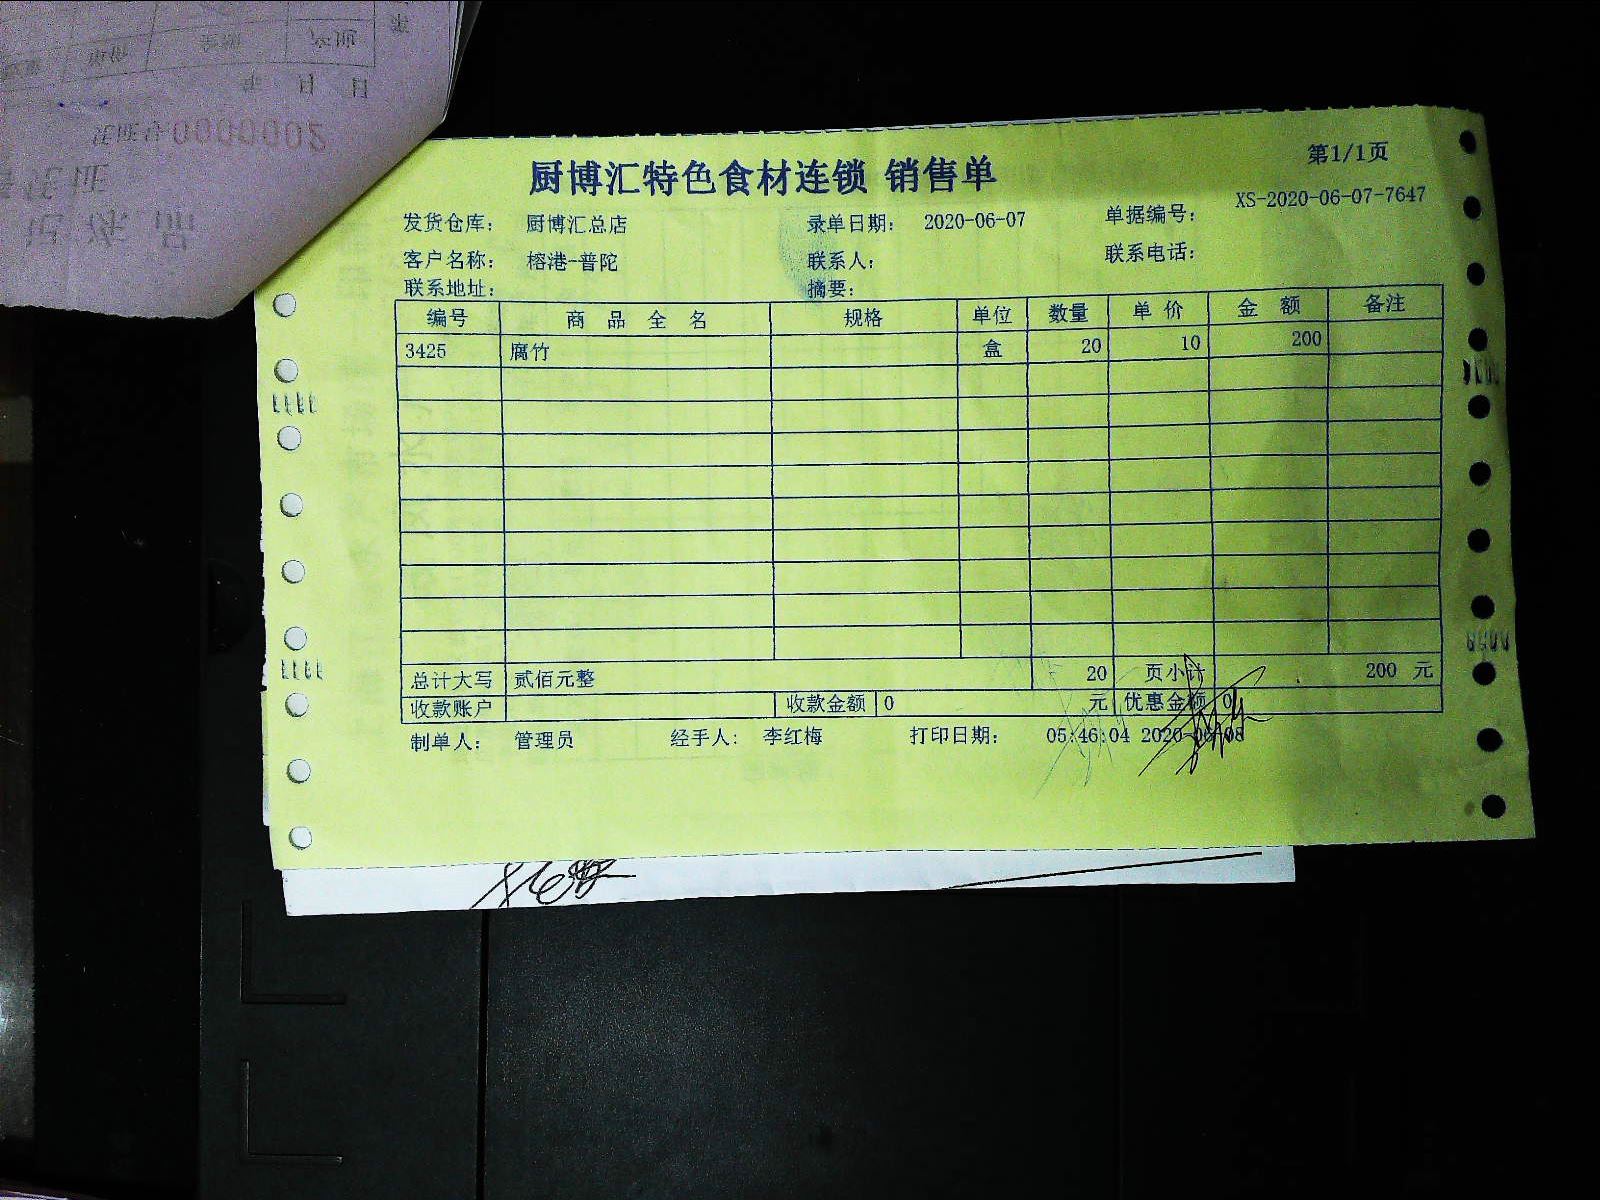 厨博汇特色食材连锁 销售单
第1/1页
发货仓库： 厨博汇总店 录单日期： 2020-06-07 单据编号： XS-2020-06-07-7647
客户名称： 榕港-普陀 联系人： 联系电话：
联系地址： 摘要：
编号 商品全名 规格 单位 数量 单价 金额 备注
3425 腐竹 盒 20 10 200
总计大写 贰佰元整 20 页小计 200 元
收款账户 收款金额 0 元 优惠金额 0
制单人： 管理员 经手人： 李红梅 打印日期： 05:46:04 2020-06-08
0000002